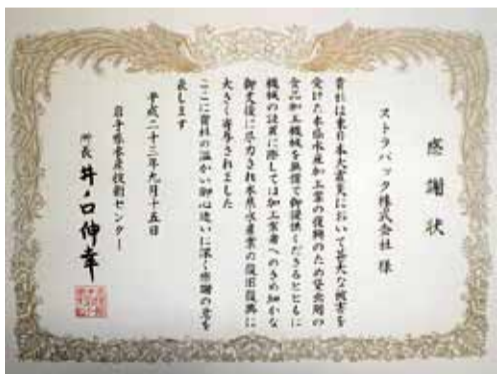 感謝状
ストラパック株式会社 様
貴社は東日本大震災において甚大な被害を
受けた本県水産加工業の復興のため貸出用の
食品加工機械を無償で御提供くださるとともに
機械の設置に際しては加工業者へのきめ細かな
御支援に尽力され本県水産業の復旧復興に
大きく寄与されました
ここに貴社の温かい御心遣いに深く感謝の意を
表します
平成二十三年九月十五日
岩手県水産技術センター
所長 井ノ口伸幸